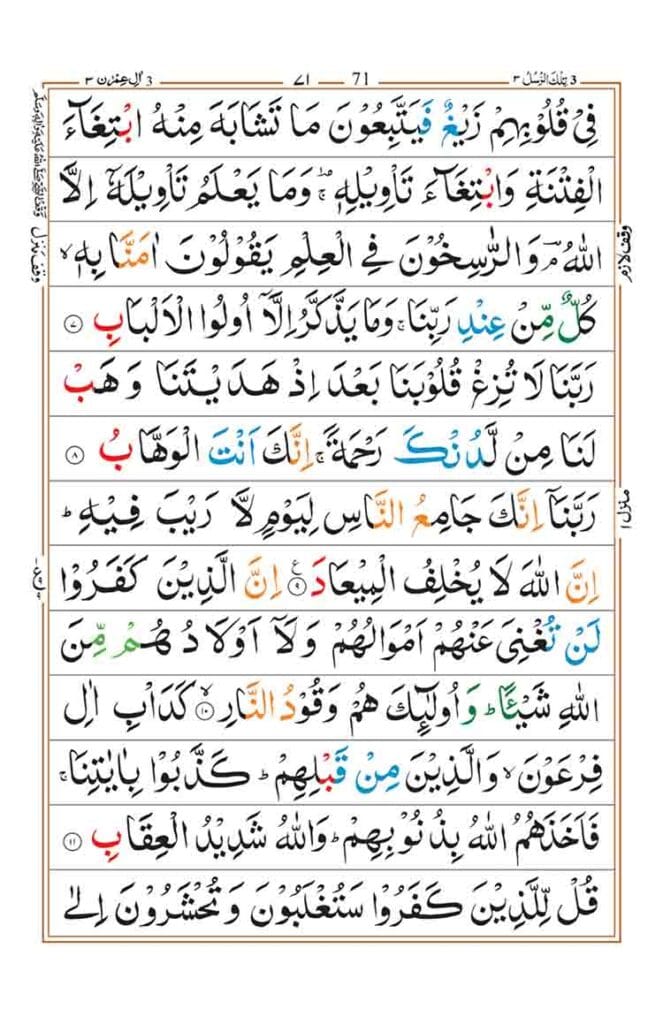 3 تِلْكَ الرُّسُلُ ٣
71 ٧١
3 اٰلِ عِمْرٰن ٣
فِیْ قُلُوْبِهِمْ زَیْغٌ فَیَتَّبِعُوْنَ مَا تَشَابَهَ مِنْهُ ابْتِغَآءَ
الْفِتْنَةِ وَابْتِغَآءَ تَاْوِیْلِهٖ ۚ وَمَا یَعْلَمُ تَاْوِیْلَهٗۤ اِلَّا
اللّٰهُ ۘ وَالرّٰسِخُوْنَ فِی الْعِلْمِ یَقُوْلُوْنَ اٰمَنَّا بِهٖ ۙ
كُلٌّ مِّنْ عِنْدِ رَبِّنَا ۚ وَمَا یَذَّكَّرُ اِلَّاۤ اُولُوا الْاَلْبَابِ ٧
رَبَّنَا لَا تُزِغْ قُلُوْبَنَا بَعْدَ اِذْ هَدَیْتَنَا وَهَبْ
لَنَا مِنْ لَّدُنْكَ رَحْمَةً ۚ اِنَّكَ اَنْتَ الْوَهَّابُ ٨
رَبَّنَاۤ اِنَّكَ جَامِعُ النَّاسِ لِیَوْمٍ لَّا رَیْبَ فِیْهِ ؕ
اِنَّ اللّٰهَ لَا یُخْلِفُ الْمِیْعَادَ ٩ ع اِنَّ الَّذِیْنَ كَفَرُوْا
لَنْ تُغْنِیَ عَنْهُمْ اَمْوَالُهُمْ وَلَاۤ اَوْلَادُهُمْ مِّنَ
اللّٰهِ شَیْـًٔا ؕ وَاُولٰٓئِكَ هُمْ وَقُوْدُ النَّارِ ١٠ ۙ كَدَاْبِ اٰلِ
فِرْعَوْنَ ۙ وَالَّذِیْنَ مِنْ قَبْلِهِمْ ؕ كَذَّبُوْا بِاٰیٰتِنَا ۚ
فَاَخَذَهُمُ اللّٰهُ بِذُنُوْبِهِمْ ؕ وَاللّٰهُ شَدِیْدُ الْعِقَابِ ١١
قُلْ لِّلَّذِیْنَ كَفَرُوْا سَتُغْلَبُوْنَ وَتُحْشَرُوْنَ اِلٰی
وقف لازم
منزل ١
وقف منزل